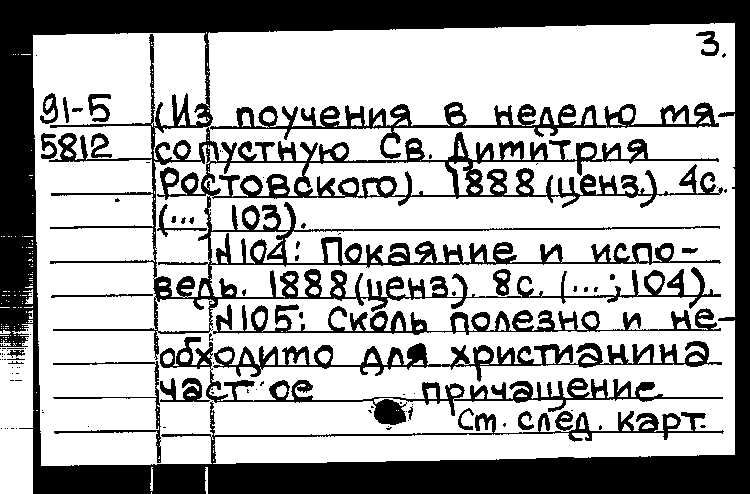 3.
91-5 (Из поучения в неделю мя-
5812 сопустную Св. Димитрия
Ростовского). 1888 (ценз.). 4с.
(...; 103).
N104: Покаяние и испо-
ведь. 1888 (ценз.). 8с. (...; 104).
N105: Сколь полезно и не-
обходимо для христианина
частое причащение
См. след. карт.